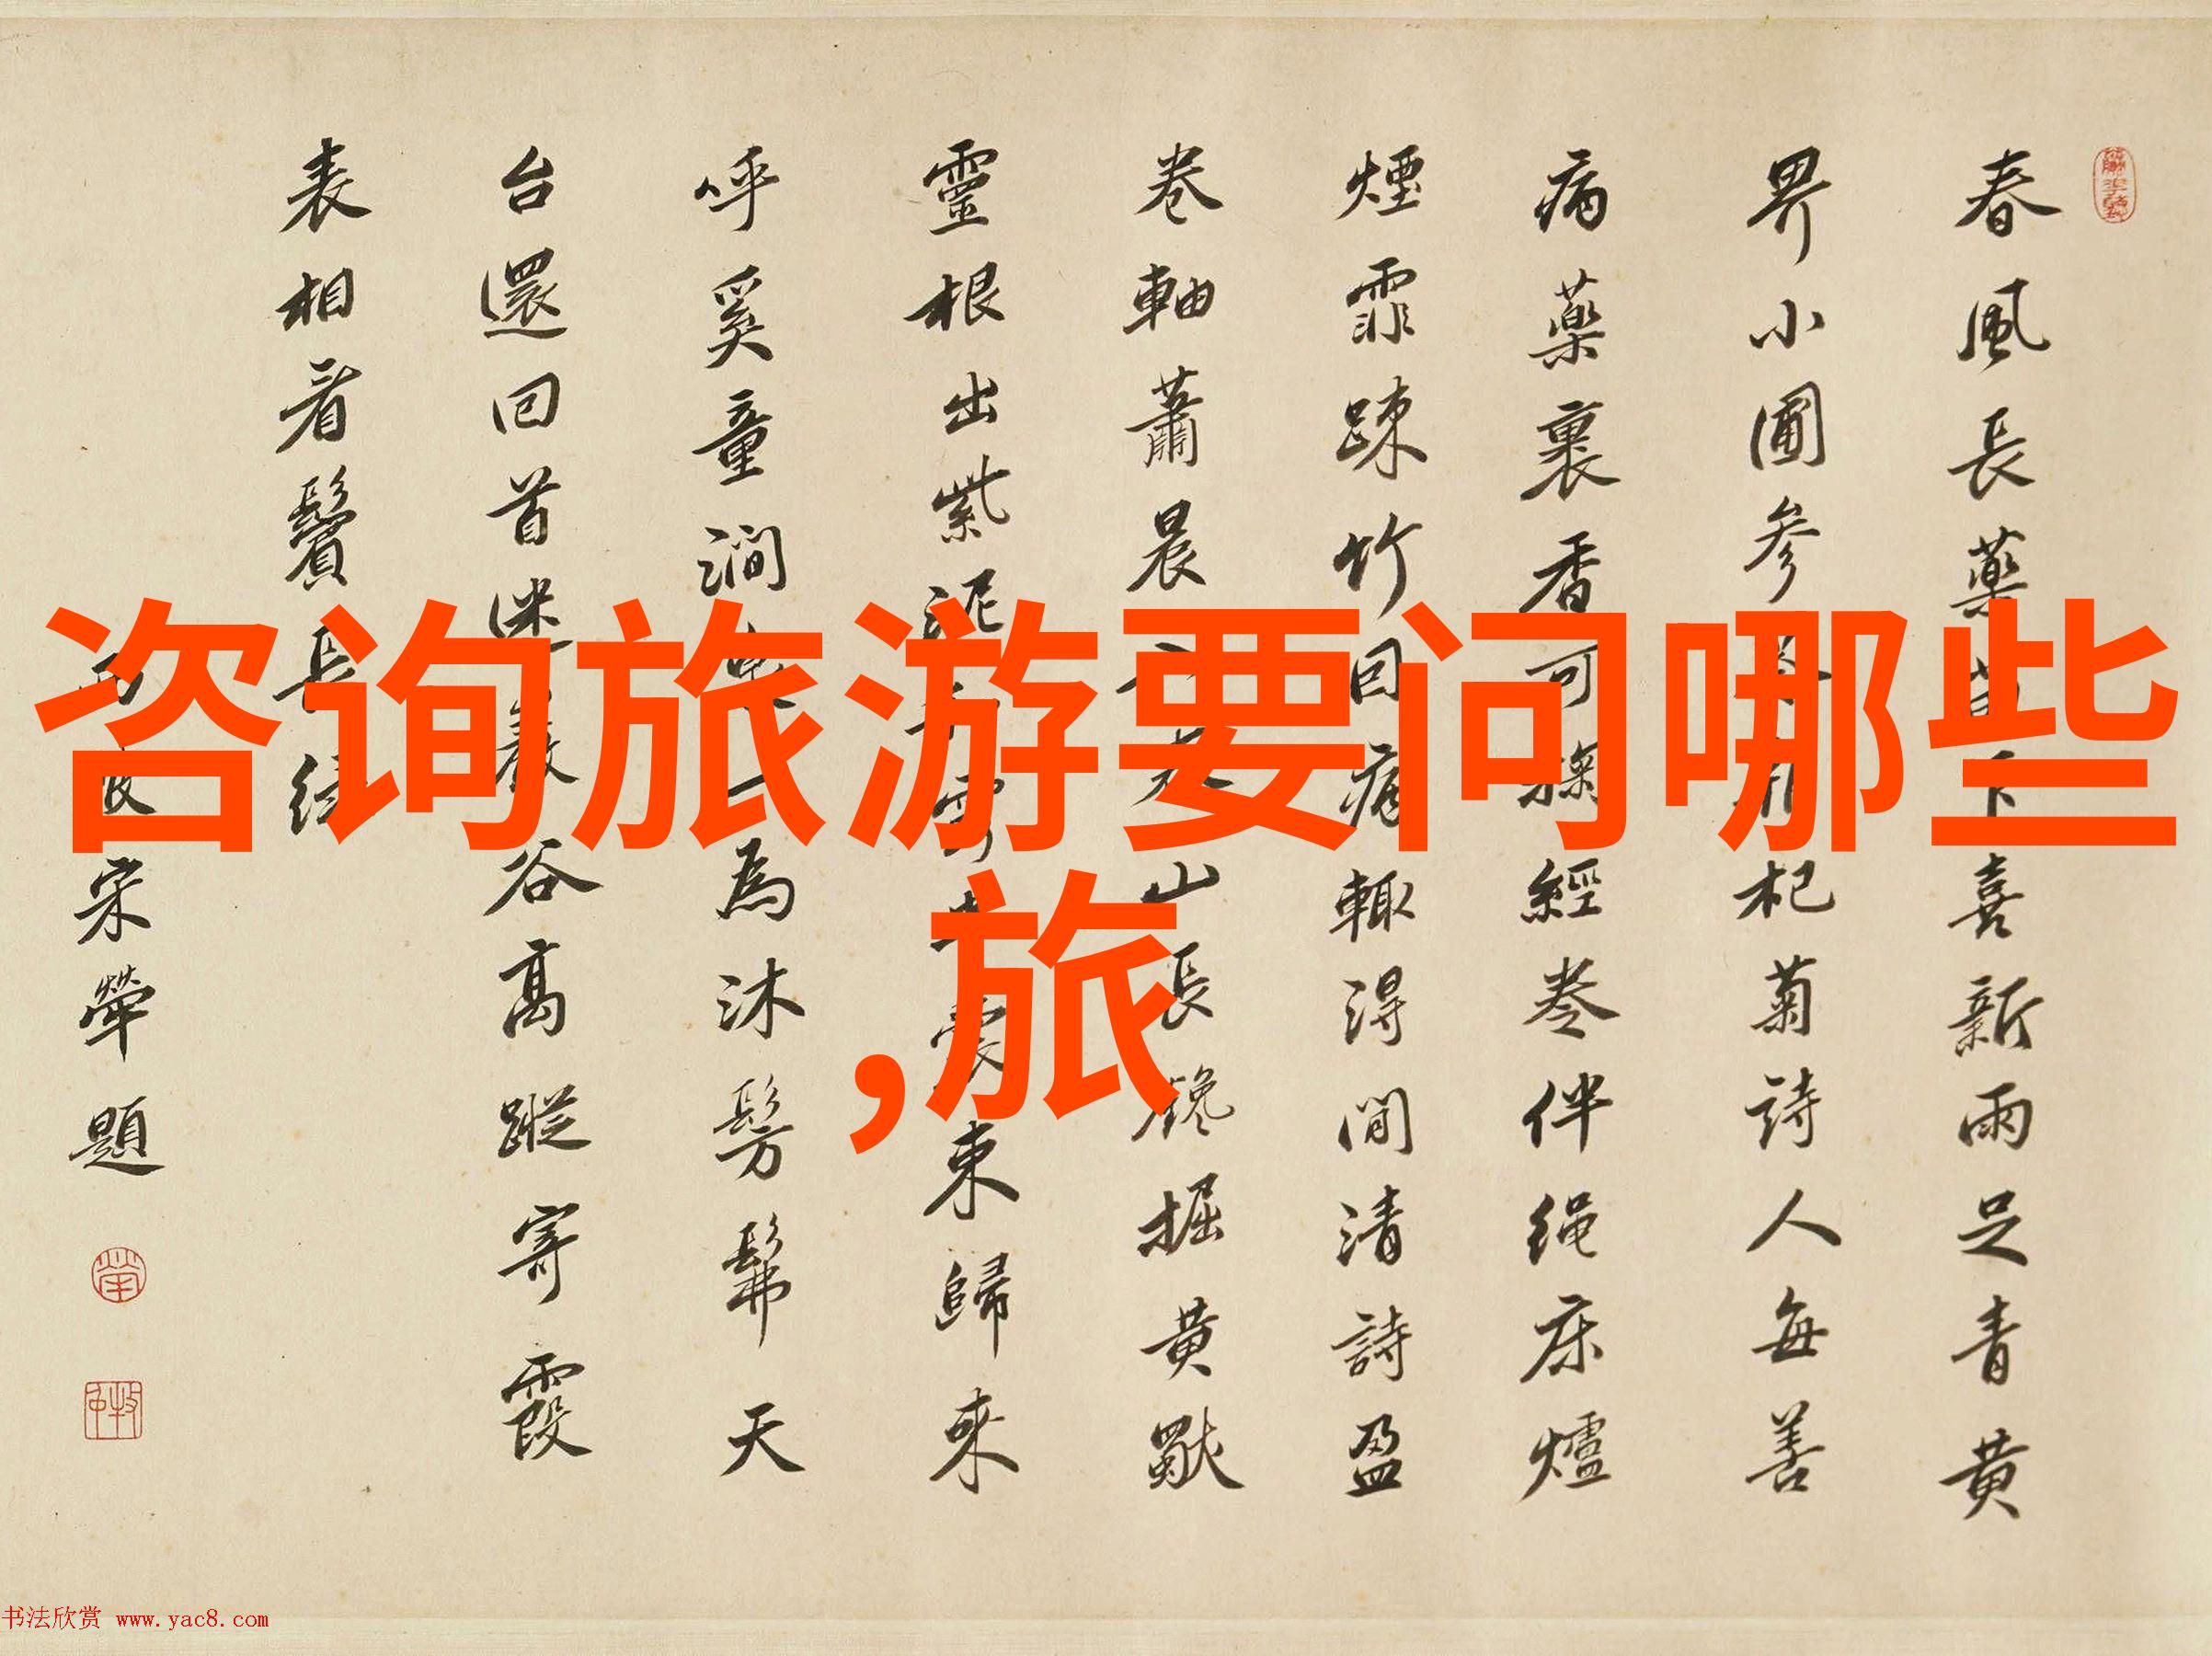 咨询旅游要问哪些
,旅
春風長藥喜新雨足青黃
畀小圃參杞菊詩人每善
病藥裹香可經卷伴绳床爐
煙霏疎竹輙得閒清詩盈
卷軸蕭晨山長鑱掘黃獨
靈根出紫泥束歸來
呼奚童澗為沐髣髴天
台還回首迷巖谷高蹤寄霞
表相看鬢長绿
陂宋犖題
书法欣赏 www.yac8.com